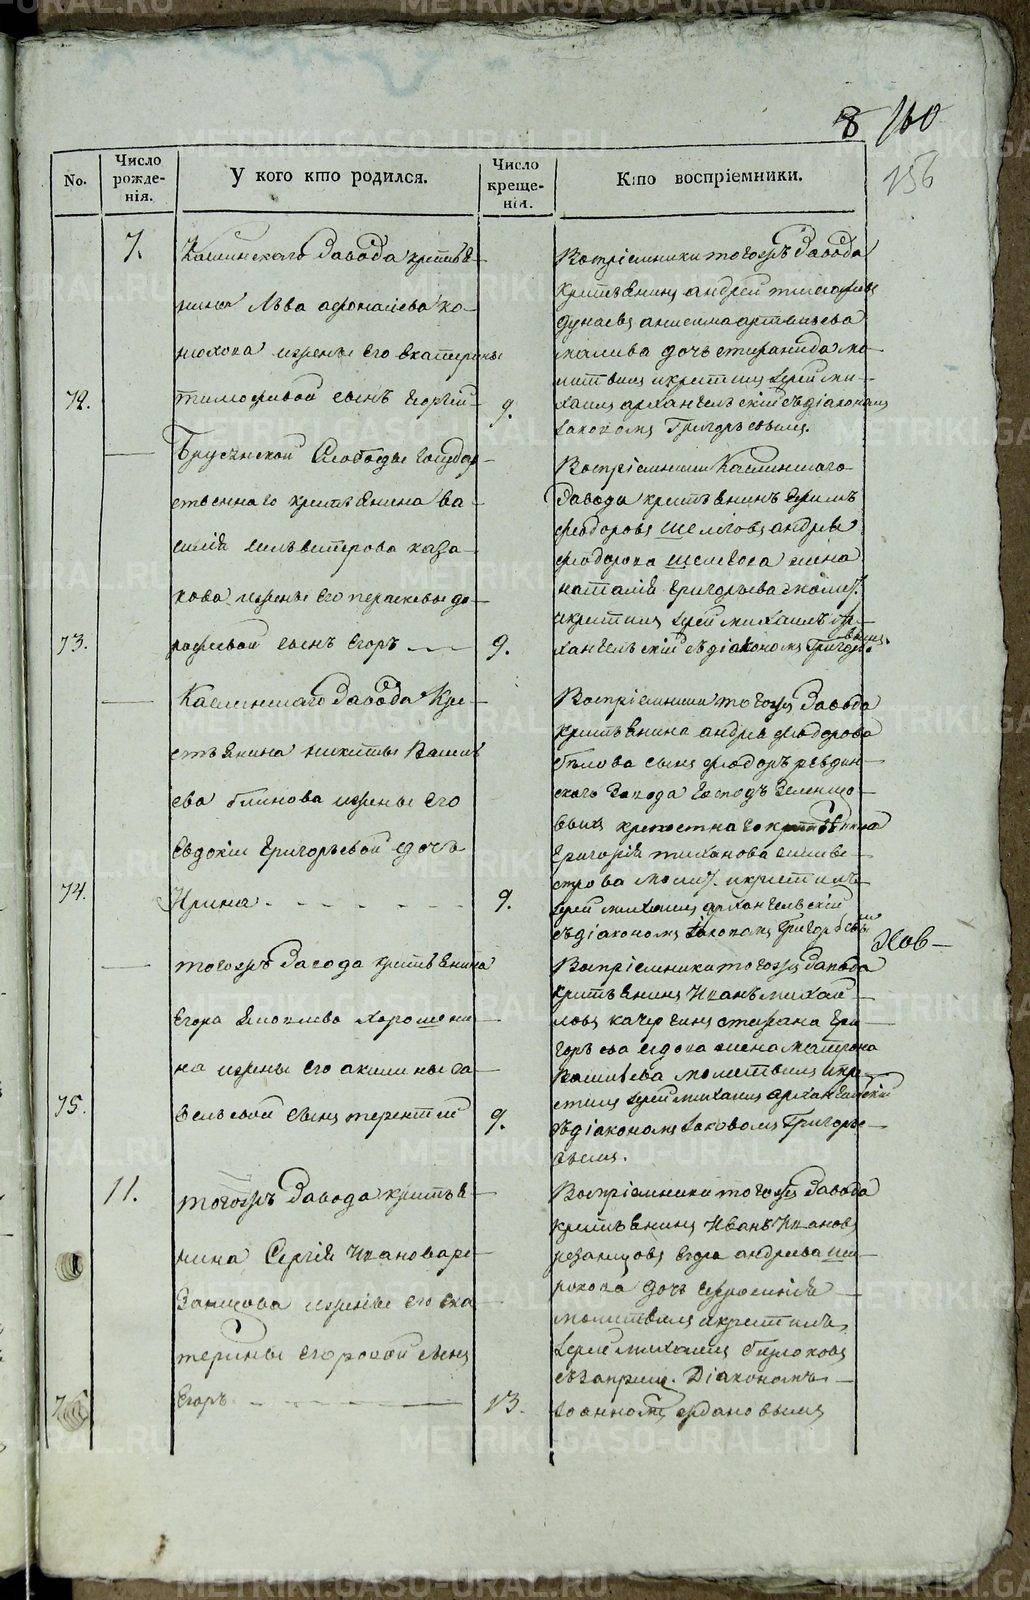 8 160
156
No.
Число рожденія.
У кого кто родился.
Число крещенія.
Кто воспріемники.
7.
Каслинскаго Завода крестья-
нина Льва афонасьева ко-
нюхова и жены его екатерины
72.
тимофеевой сынъ Георгій
9.
Воспріемники тогожъ Завода
крестьянинъ андрей тимофеевъ
дунаевъ анисима артемьева
малива дочь степанида мо-
литвилъ и крестилъ Іерей ми-
хаилъ архангельскій съ діакономъ
Іаковомъ Григорьевымъ.
Брусянской Слободы государ-
ственнаго крестьянина ва-
силія сильвестрова каза-
кова и жены его парасковьи до-
73.
рофеевой сынъ Егоръ
9.
Воспріемники Каслинскаго
Завода крестьянинъ Ефимъ
феодоровъ шелеговъ андрея
феодорова шелегова жена
наталія григорьева молит.
и крестилъ Іерей михаилъ Ар-
хангельскій съ діакономъ Григорье-
вымъ.
Каслинскаго Завода Кре-
стьянина никиты Василь
ева блинова и жены его
Евдокіи Григорьевой дочь
74.
Ирина
9.
Воспріемники тогожъ Завода
крестьянина андрея феодорова
бѣлова сынъ феодоръ ревдин-
скаго Завода Господъ Зеленцо-
выхъ крепостнаго крестьянина
григорія тиханова сильве-
строва молит. и крестилъ
Іерей михаилъ архангельскій
съ діакономъ Іаковомъ Григорьевымъ
тогожъ Завода крестьянина
Егора Яковлева хорошени-
на и жены его акилины са-
75.
вельевой сынъ терентій
9.
Воспріемники тогожъ Завода
крестьянинъ Иванъ михай-
ловъ качергинъ степана гри-
горьева седова жена матрона
Васильева молитвилъ и кре-
стилъ Іерей михаилъ архангельскій
съ діакономъ Іаковомъ Григорье-
вымъ.
11.
тогожъ Завода крестья-
нина Сергія Иванова ре-
занцова и жены его ека-
терины Егоровой сынъ
Егоръ
13.
Воспріемники тогожъ Завода
крестьянинъ Иванъ Ивановъ
резанцовъ Егора андреева ши-
рокова дочь ефросинія
молитвилъ и крестилъ
Іерей михаилъ бирюковъ
съ Діакономъ
Іоанномъ